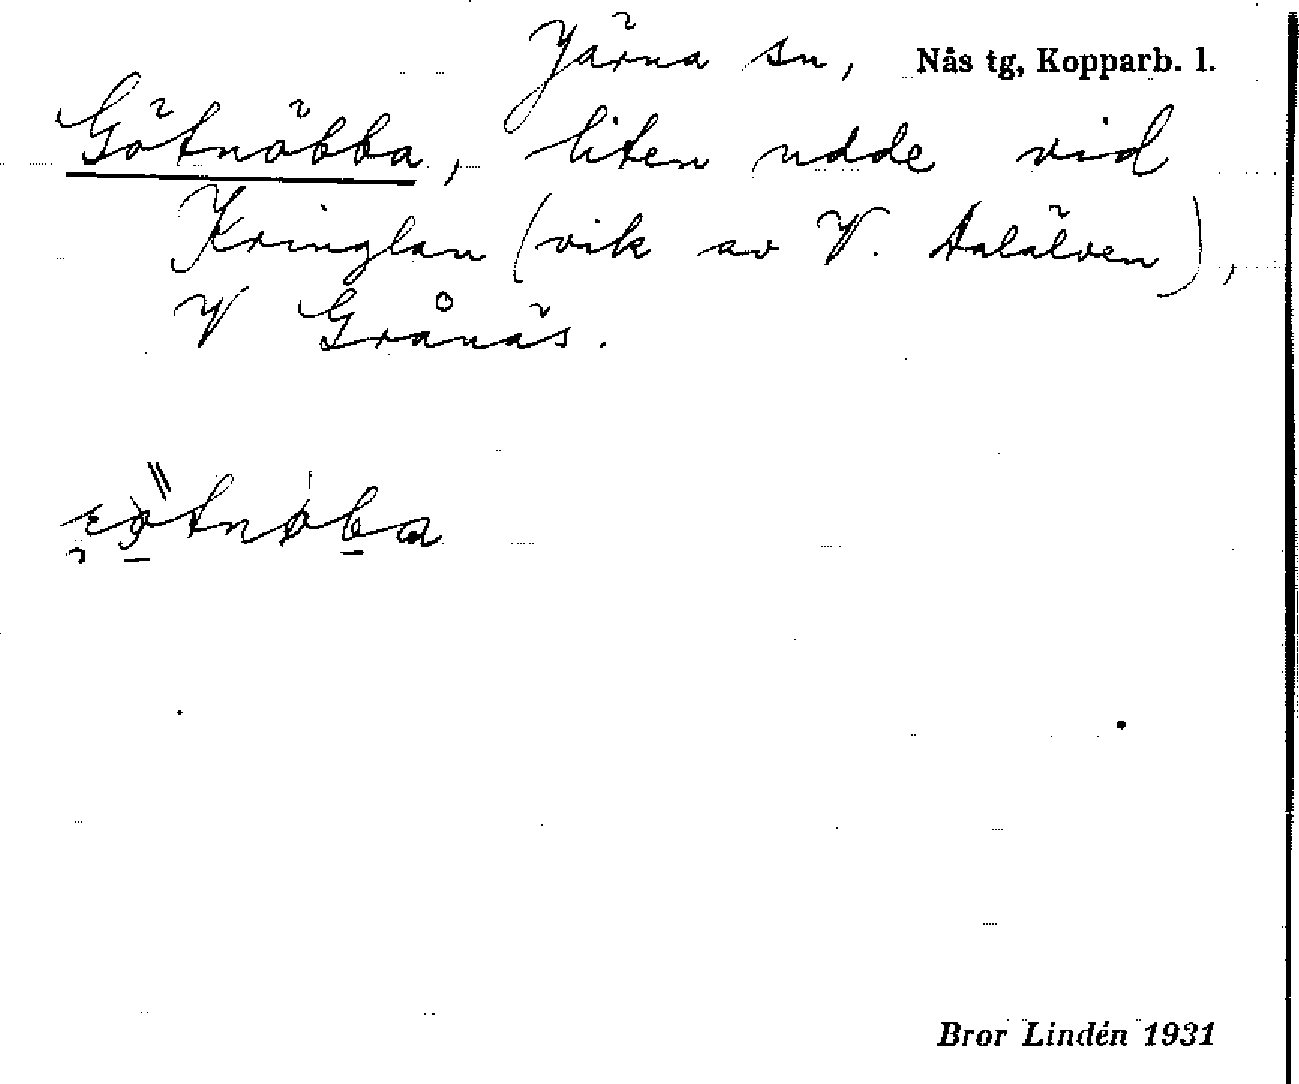 Järna sn, Nås tg, Kopparb. l.
Götnöbba, liten udde vid
Kringlan (vik av V. Dalälven),
V Grånäs.
Bror Lindén 1931